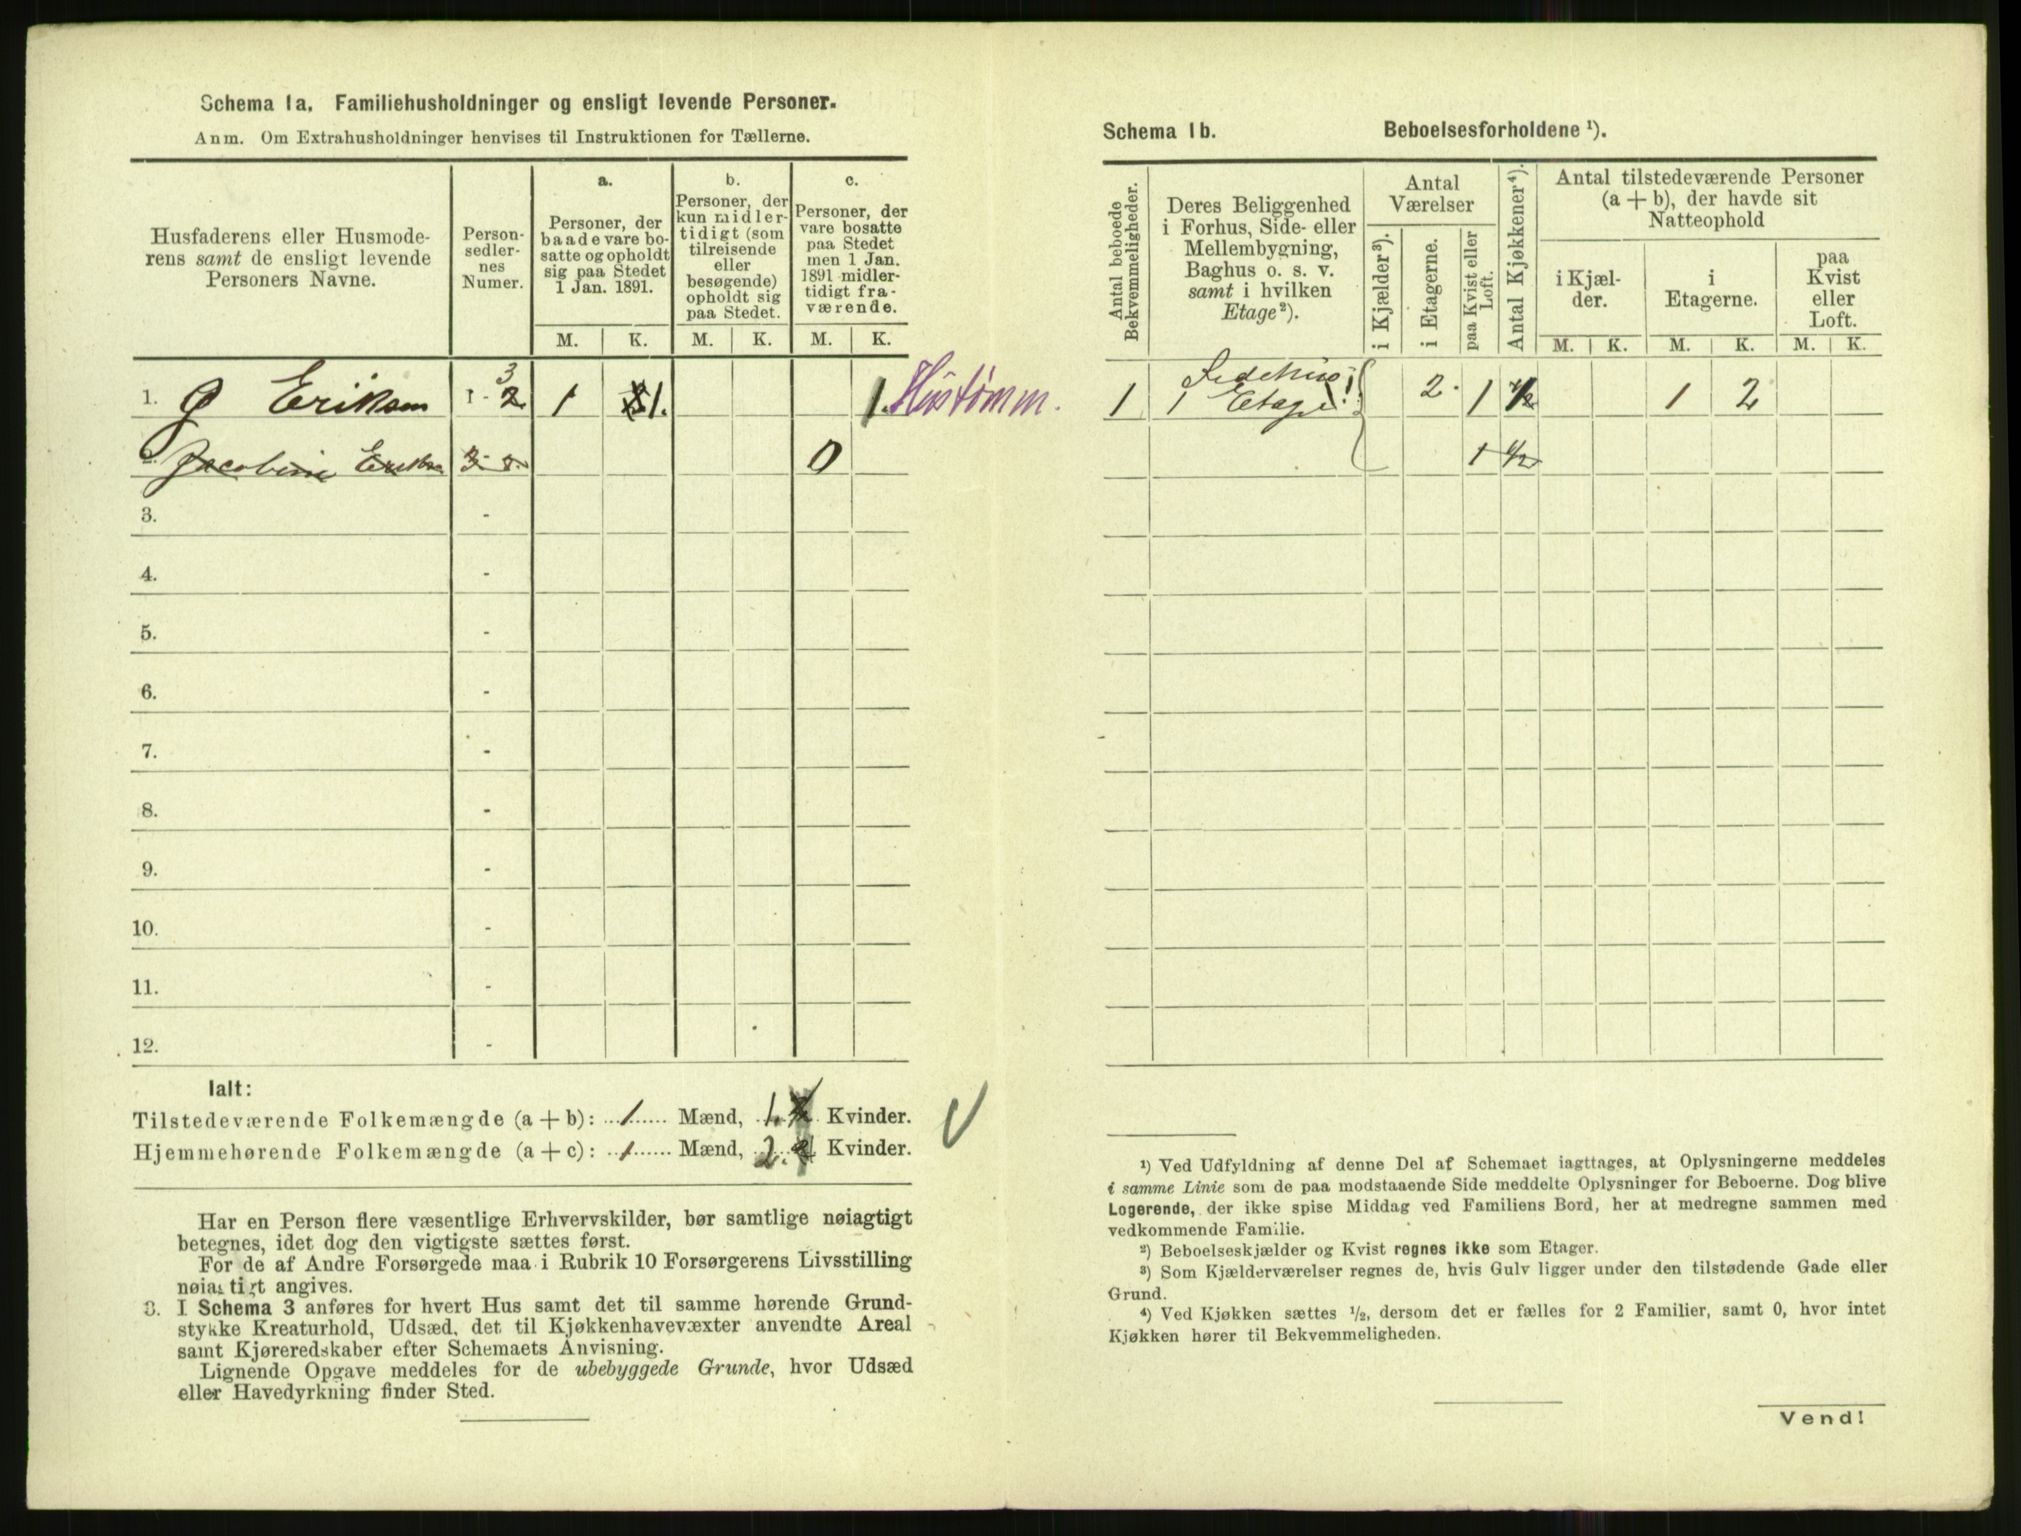 Schema 1a. Familiehusholdninger og ensligt levende Personer.
Anm. Om Extrahusholdninger henvises til Instruktionen for Tællerne.
Husfaderens eller Husmode-
rens samt de ensligt levende
Personers Navne.
Person-
sedler-
nes
Numer.
a.
Personer, der
baade vare bo-
satte og opholdt
sig paa Stedet
1 Jan. 1891.
b.
Personer, der
kun midler-
tidigt (som
tilreisende
eller
besøgende)
opholdt sig
paa Stedet.
c.
Personer, der
vare bosatte
paa Stedet
men 1 Jan.
1891 midler-
tidigt fra-
værende.
M. K. M. K. M. K.
1. G Eriksen 1 - 3 2 1 1. 1. Hustømm.
Jacobine Eriksen 0
3. -
4. -
5. -
6. -
7. -
8. -
9. -
10. -
11. -
12. -
Ialt:
Tilstedeværende Folkemængde (a + b): 1 Mænd, 1. Kvinder.
Hjemmehørende Folkemængde (a + c): 1 Mænd, 2. Kvinder.
Har en Person flere væsentlige Erhvervskilder, bør samtlige nøiagtigt
betegnes, idet dog den vigtigste sættes først.
For de af Andre Forsørgede maa i Rubrik 10 Forsørgerens Livsstilling
nøiagtigt angives.
3. I Schema 3 anføres for hvert Hus samt det til samme hørende Grund-
stykke Kreaturhold, Udsæd, det til Kjøkkenhavevæxter anvendte Areal
samt Kjøreredskaber efter Schemaets Anvisning.
Lignende Opgave meddeles for de ubebyggede Grunde, hvor Udsæd
eller Havedyrkning finder Sted.
Schema 1b. Beboelsesforholdene ¹).
Antal beboede
Bekvemmeligheder.
Deres Beliggenhed
i Forhus, Side- eller
Mellembygning,
Baghus o. s. v.
samt i hvilken
Etage²).
Antal
Værelser
i Kjælder³).
i Etagerne.
paa Kvist eller
Loft.
Antal Kjøkkener⁴).
Antal tilstedeværende Personer
(a + b), der havde sit
Natteophold
i Kjæl-
der.
i
Etagerne.
paa
Kvist
eller
Loft.
M. K. M. K. M. K.
1 Sidehus
1 Etage 2. 1 1/2 1 2
1 1/2
¹) Ved Udfyldning af denne Del af Schemaet iagttages, at Oplysningerne meddeles
i samme Linie som de paa modstaaende Side meddelte Oplysninger for Beboerne. Dog blive
Logerende, der ikke spise Middag ved Familiens Bord, her at medregne sammen med
vedkommende Familie.
²) Beboelseskjælder og Kvist regnes ikke som Etager.
³) Som Kjælderværelser regnes de, hvis Gulv ligger under den tilstødende Gade eller
Grund.
⁴) Ved Kjøkken sættes ¹/₂, dersom det er fælles for 2 Familier, samt 0, hvor intet
Kjøkken hører til Bekvemmeligheden.
Vend!